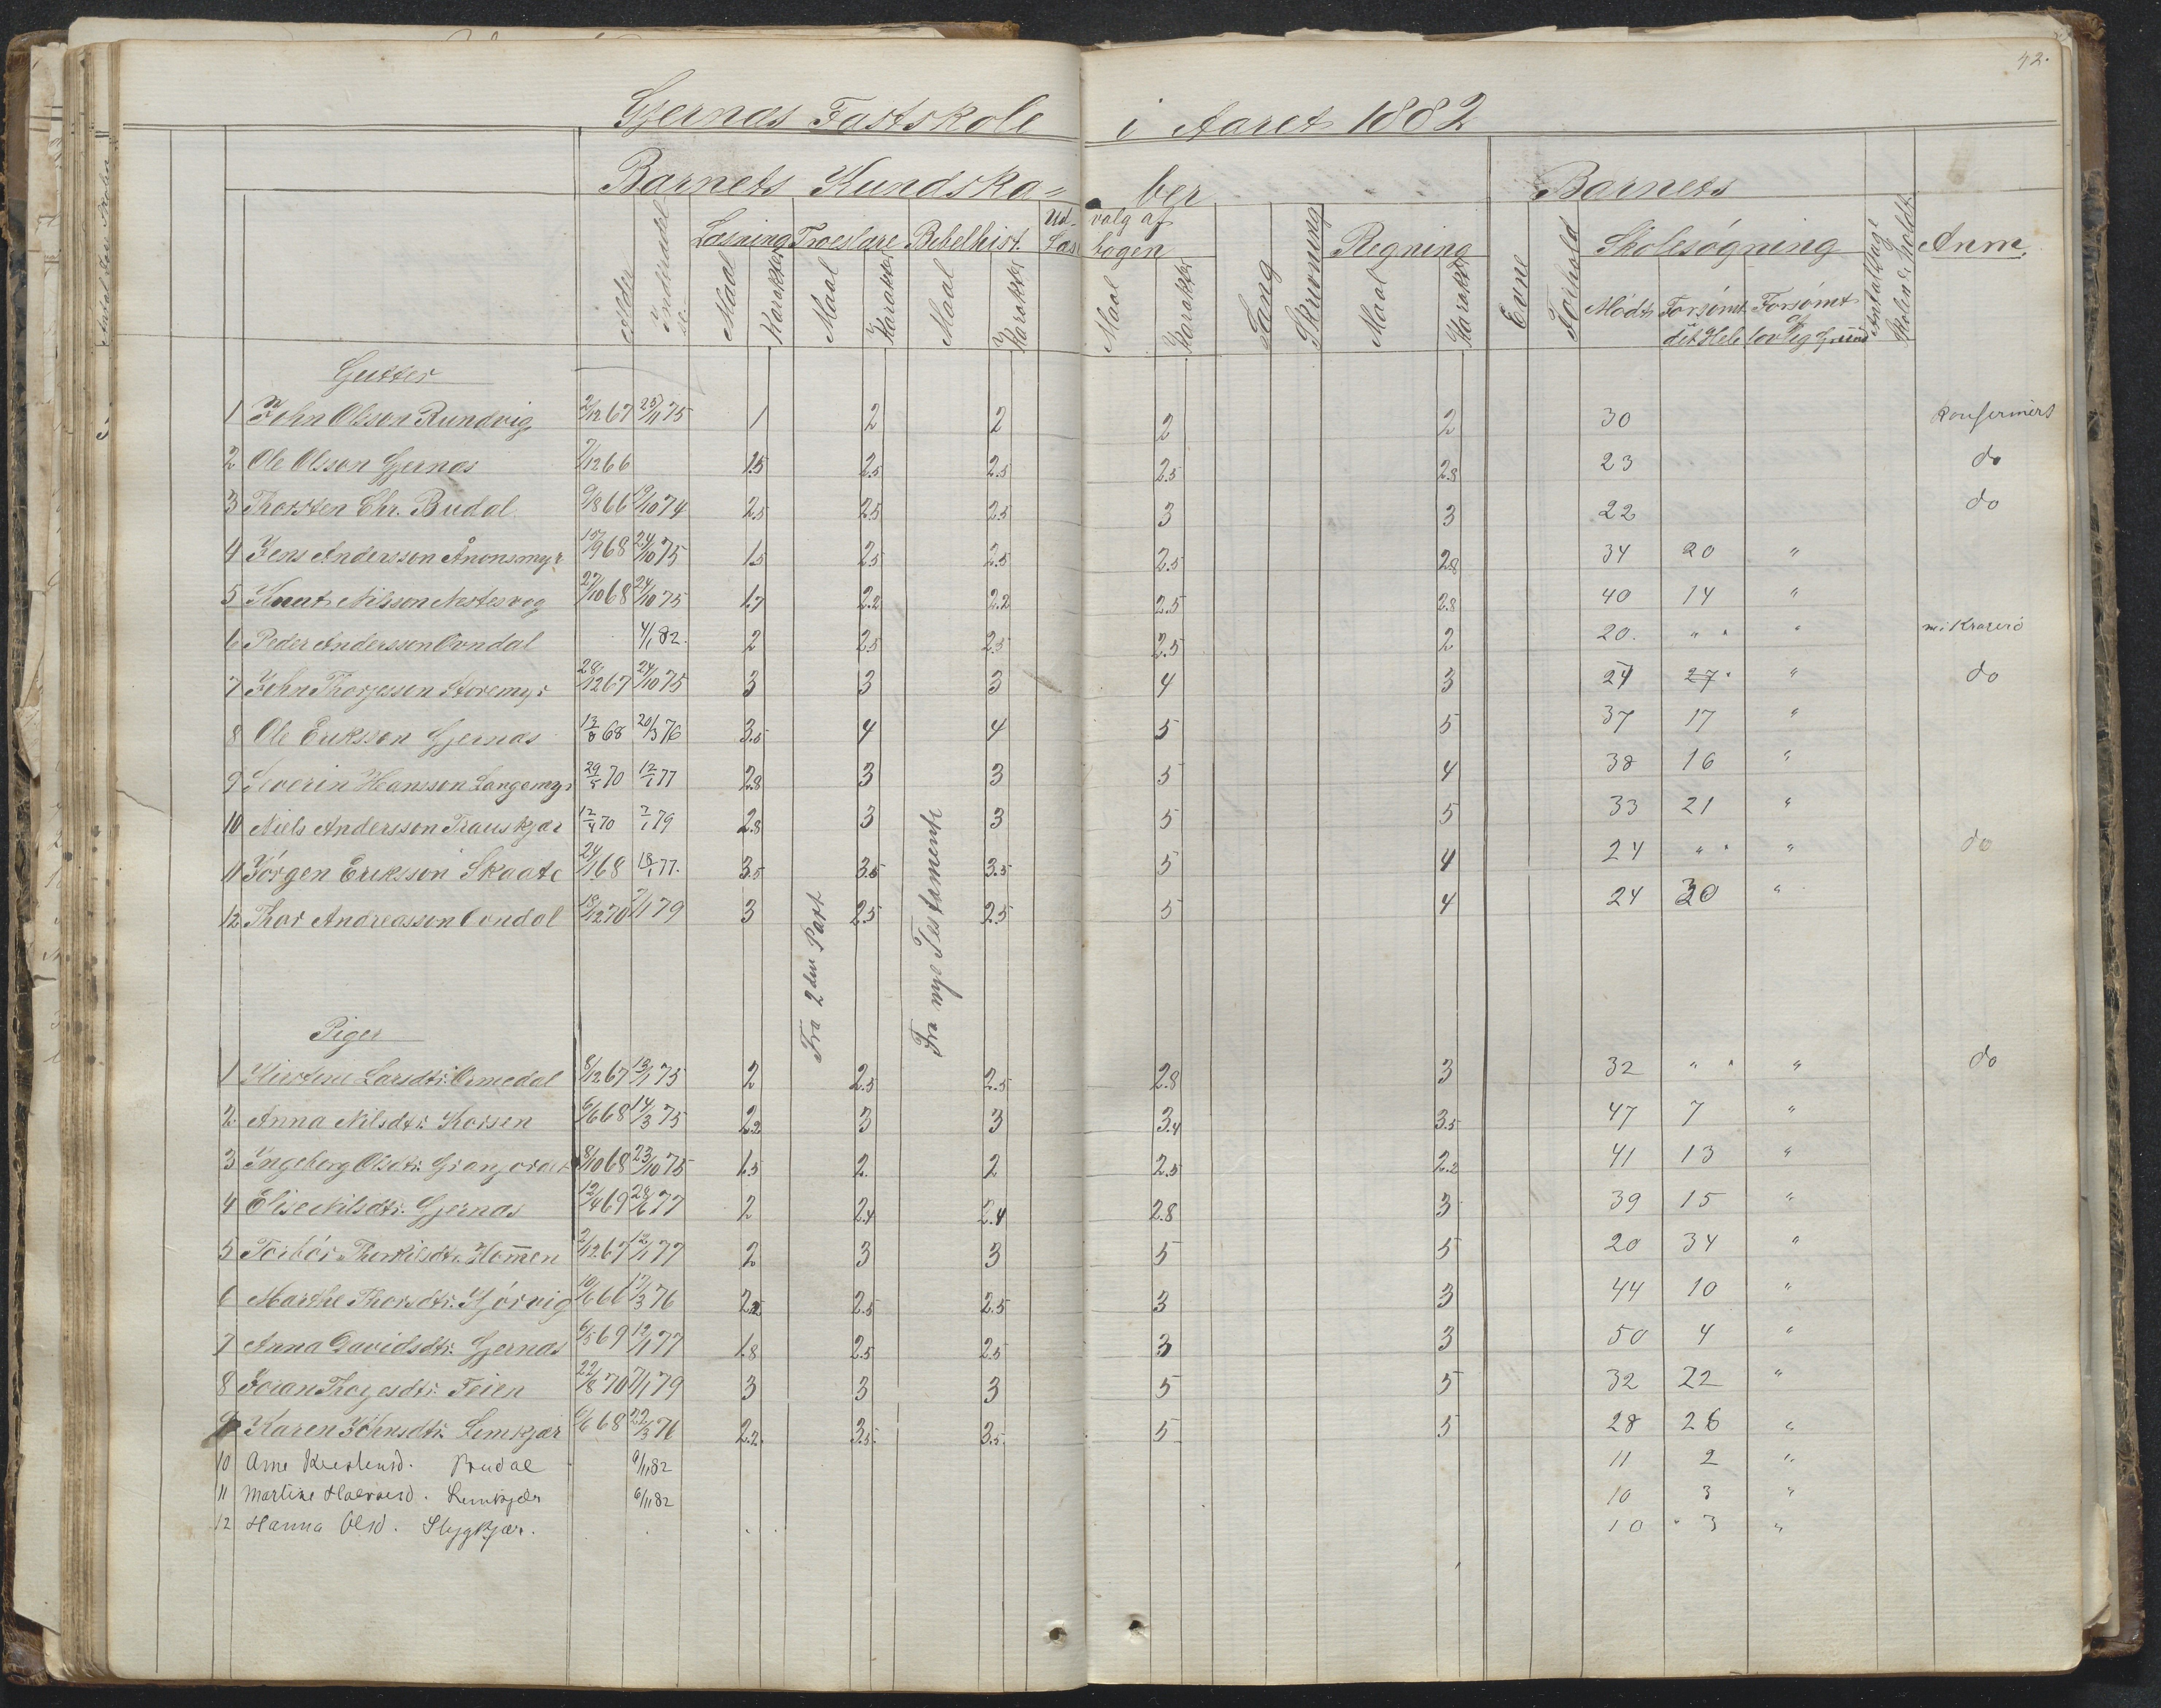 42.
Gjernæs Fastskole i Aaret 1882
Barnets Kundska= ber Barnets
Alder Læsning Troeslære Bibelhist. Ud- valg af Læs bogen Sang Skrivning Regning Evne Forhold Skolesøgning Anm.
Maal Karakter Maal Karakter Maal Karakter Maal Karakter Maal Karakter Mødt Forsømt det Hele Forsømt af lovlig Grund Antal Dage Skolen er holdt
Gutter
1 John Olsson Rundvig 2/12 67 23/11 75 1 2 2 2 2 30 Konfermert
2 Ole Olsson Gjernæs 7/12 66 1.5 2.5 2.5 2.5 2.8 23 do
3 Thorsten Chr. Budal 9/8 66 19/10 74 2.5 2.5 2.5 3 3 22 do
4 Jens Andersson Ånonsmyr 15/9 68 24/10 75 1.5 2.5 2.5 2.5 2.8 34 20 "
5 Knut Nilsson Nestesvog 27/10 68 24/10 75 1.7 2.2 2.2 2.5 2.8 40 14 "
6 Peder Andersson Ovndal 4/1 82. 2 2.5 2.5 2.5 2 20. " " "
7 John Thorjesson Storemyr 28/12 67 24/10 75 3 3 3 4 3 24 27 " do
8 Ole Eriksson Gjernæs 13/8 68 20/3 76 3.5 4 4 5 5 37 17 "
9 Severin Hansson Langemyr 29/5 70 12/1 77 2.8 3 3 5 4 38 16 "
10 Niels Andersson Trauskjær 12/4 70 7/1 79 2.8 3 3 5 5 33 21 "
11 Jörgen Eriksson Skaate 24/1 68 18/1 77. 3.5 3.5 3.5 5 4 24 " " " do
12 Thor Andreasson Ovndal 18/12 70 7/1 79 3 2.5 2.5 5 4 24 30 "
Fra 2den Part
Fra nye Testamente
Piger
1 Kirstene Larsdtr. Ormedal 8/12 67 13/1 75 2 2.5 2.5 2.8 3 32 " " " do
2 Anna Nilsdtr. Korsen 6/6 68 14/3 75 2.2 3 3 3.4 3.5 47 7 "
3 Ingeberg Olsdtr. 8/10 68 23/10 75 1.5 2. 2 2.5 2.2 41 13 "
4 Elise Nilsdtr. Gjernæs 12/4 69 28/6 77 2 2.4 2.4 2.8 3 39 15 "
5 Torbör Therkilsdtr. Homen 2/12 67 12/1 77 2 3 3 5 5 20 34 "
6 Marthe Thorsdtr. Kjörvig 10/6 66 17/3 76 2.2 2.5 2.5 3 3 44 10 "
7 Anna Davidsdtr. Gjernæs 6/5 69 12/1 77 1.8 2.5 2.5 3 3 50 4 "
8 Joran Thorjesdtr. Feien 22/8 70 7/1 79 3 3 3 5 5 32 22 "
9 Karen Johnsdtr. Lemkjær 6/6 68 22/3 76 2.2. 3.5. 3.5. 5 5 28 26 "
10 Arne Budal 9/11 82 11 2 "
11 Martine Lemkjær 6/11 82 10 3 "
12 Hanna Olsd. Styggkjær. 10 3 "